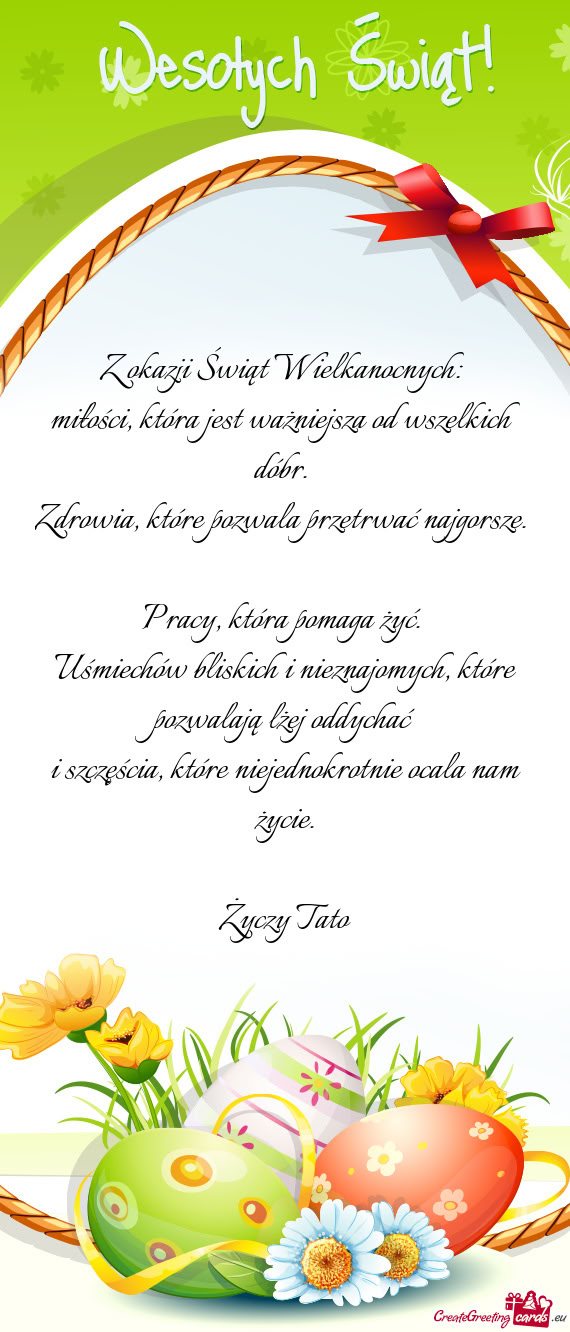 Wesołych Świąt!
Z okazji Świąt Wielkanocnych:
miłości, która jest ważniejsza od wszelkich
dóbr.
Zdrowia, które pozwala przetrwać najgorsze.
Pracy, która pomaga żyć.
Uśmiechów bliskich i nieznajomych, które
pozwalają lżej oddychać
i szczęścia, które niejednokrotnie ocala nam
życie.
Życzy Tato
CreateGreeting cards .eu